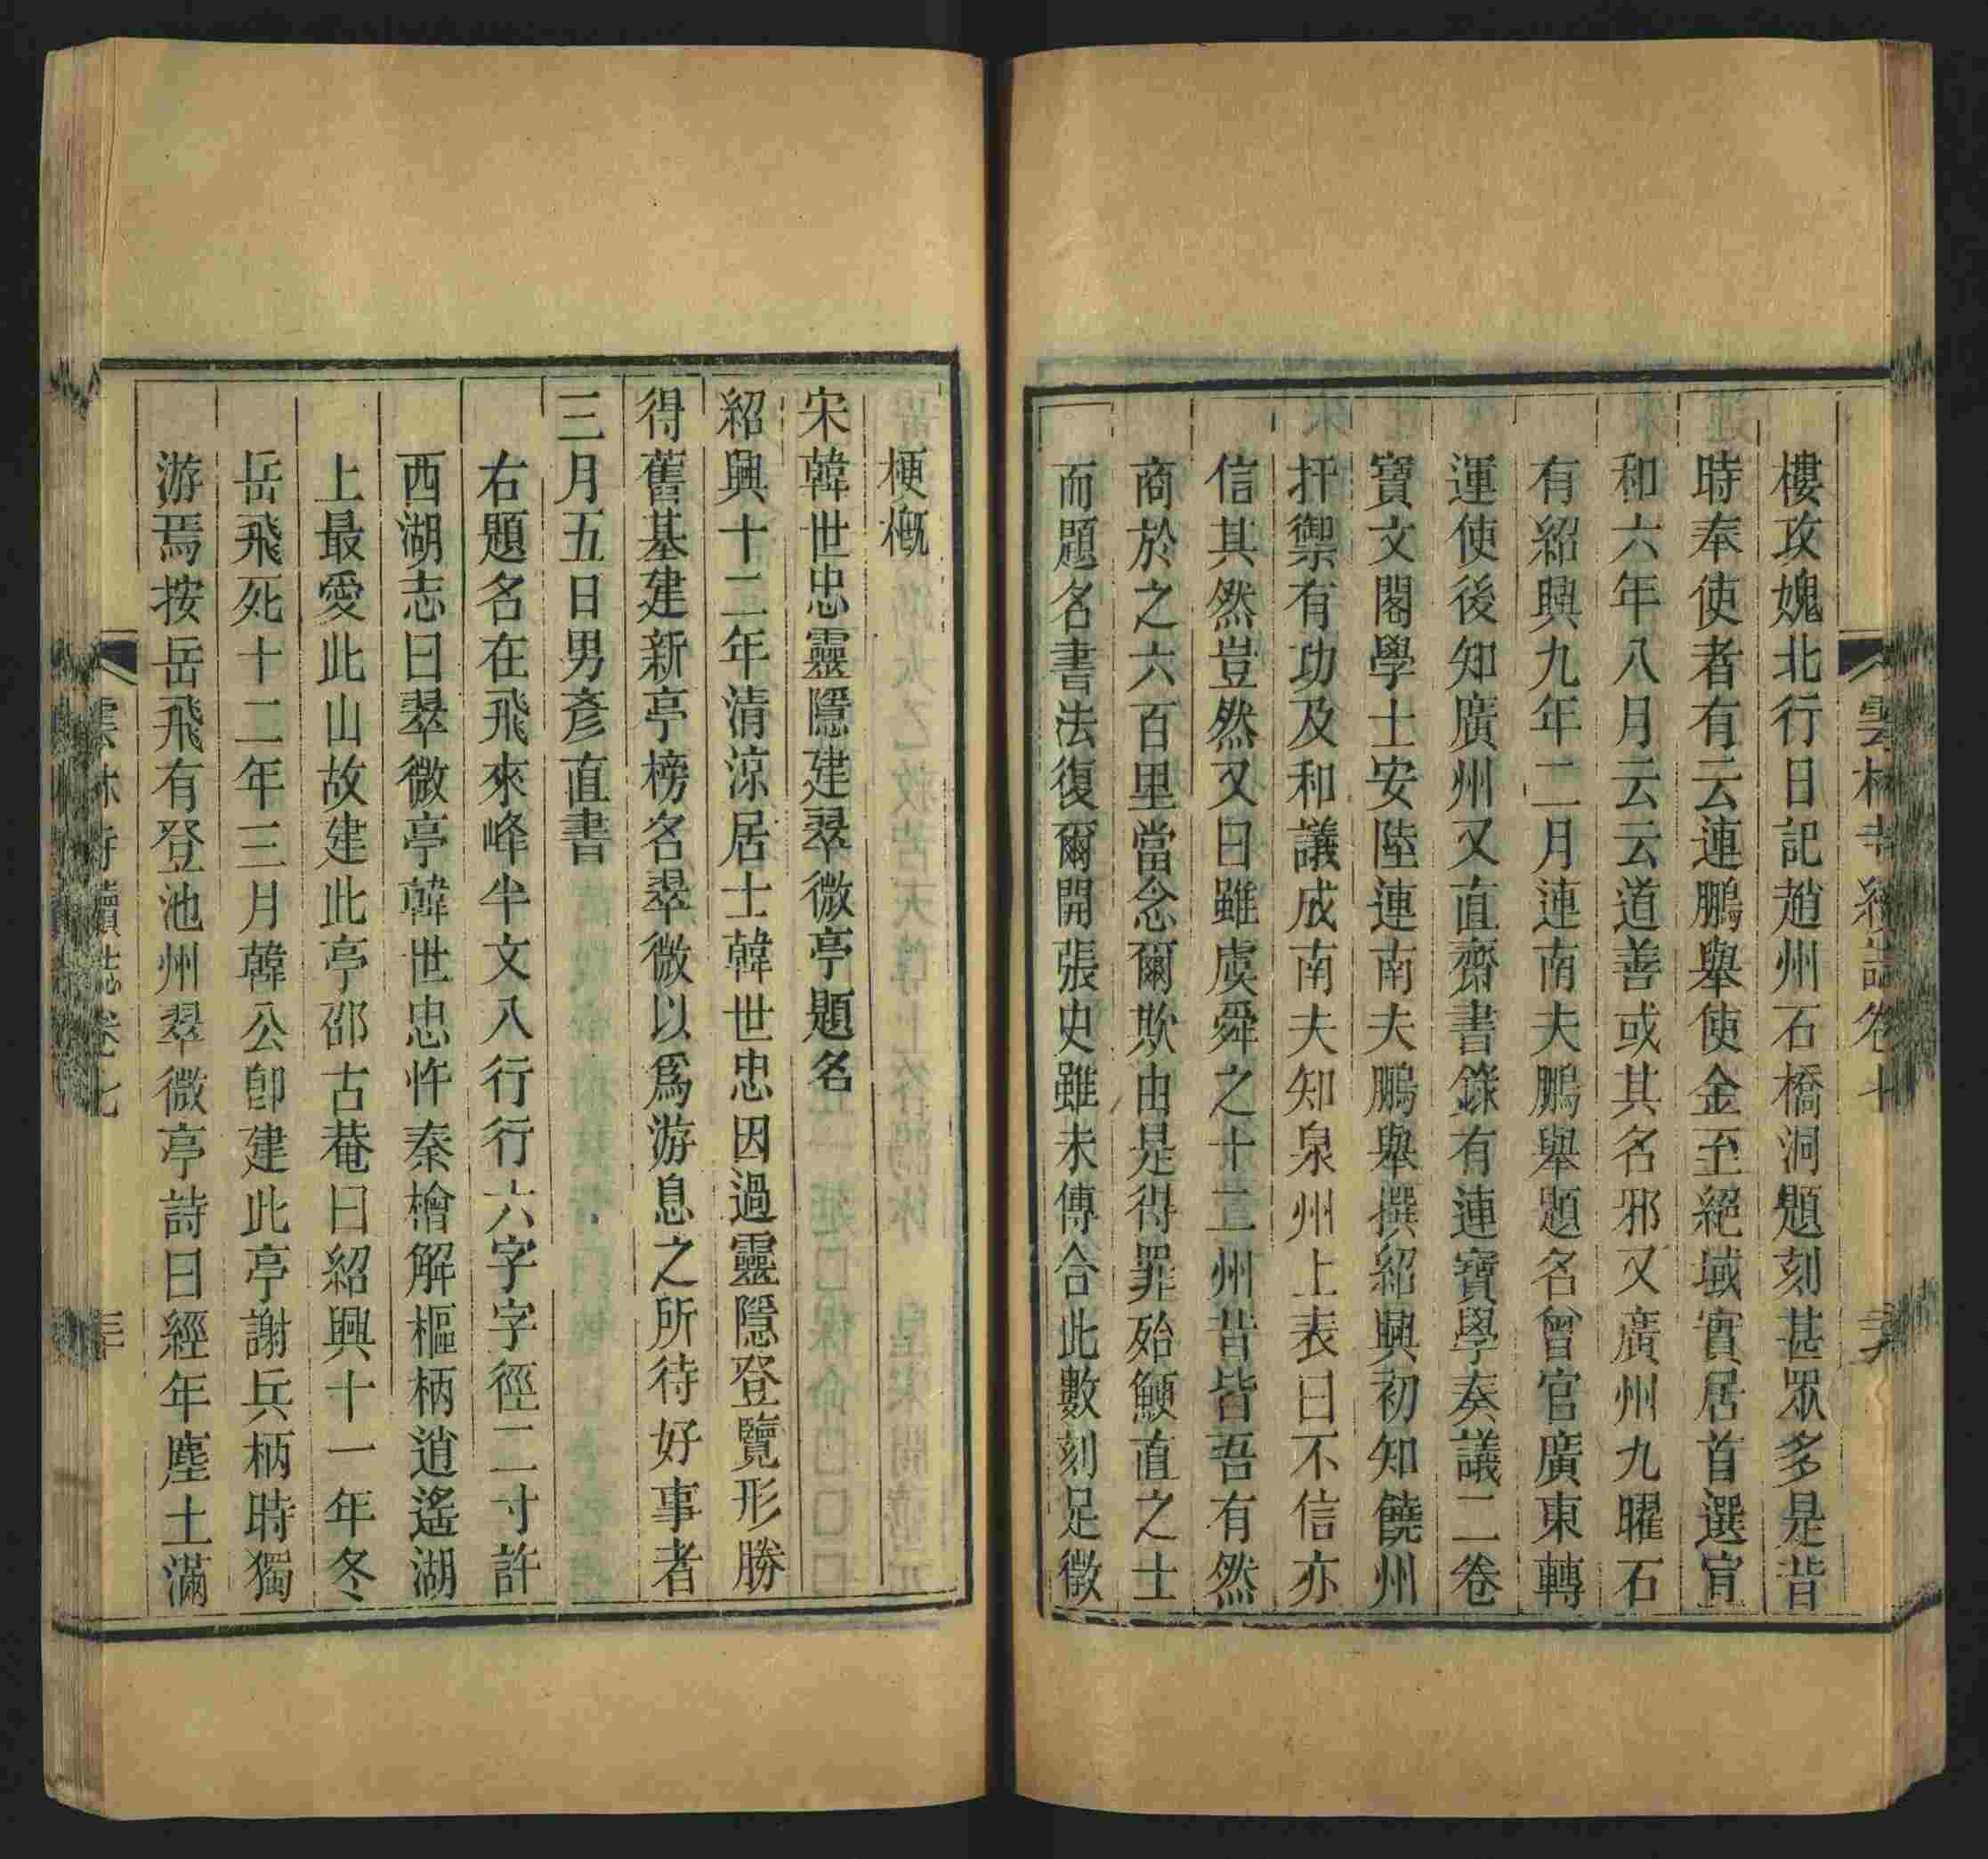 雲林寺續誌卷七 二十九
樓攻媿北行日記趙州石橋洞題刻甚眾多是昔
時奉使者有云連鵬舉使金至絕域實居首選宣
和六年八月云云道善或其名邪又廣州九曜石
有紹興九年二月連南夫鵬舉題名曾官廣東轉
運使後知廣州又直齋書錄有連寶學奏議二卷
寶文閣學士安陸連南夫鵬舉撰紹興初知饒州
扞禦有功及和議成南夫知泉州上表曰不信亦
信其然豈然又曰雖虞舜之十二州昔皆吾有然
商於之六百里當念爾欺由是得罪殆鯁直之士
而題名書法復爾開張史雖未傳合此數刻足徵
梗概
宋韓世忠靈隱建翠微亭題名
紹興十二年清涼居士韓世忠因過靈隱登覽形勝
得舊基建新亭榜名翠微以為游息之所待好事者
三月五日男彥直書
右題名在飛來峰半文八行行六字字徑二寸許
西湖志曰翠微亭韓世忠忤秦檜解樞柄逍遙湖
上最愛此山故建此亭邵古菴曰紹興十一年冬
岳飛死十二年三月韓公卽建此亭謝兵柄時獨
游焉按岳飛有登池州翠微亭詩曰經年塵土滿
雲林寺續誌卷七 三十